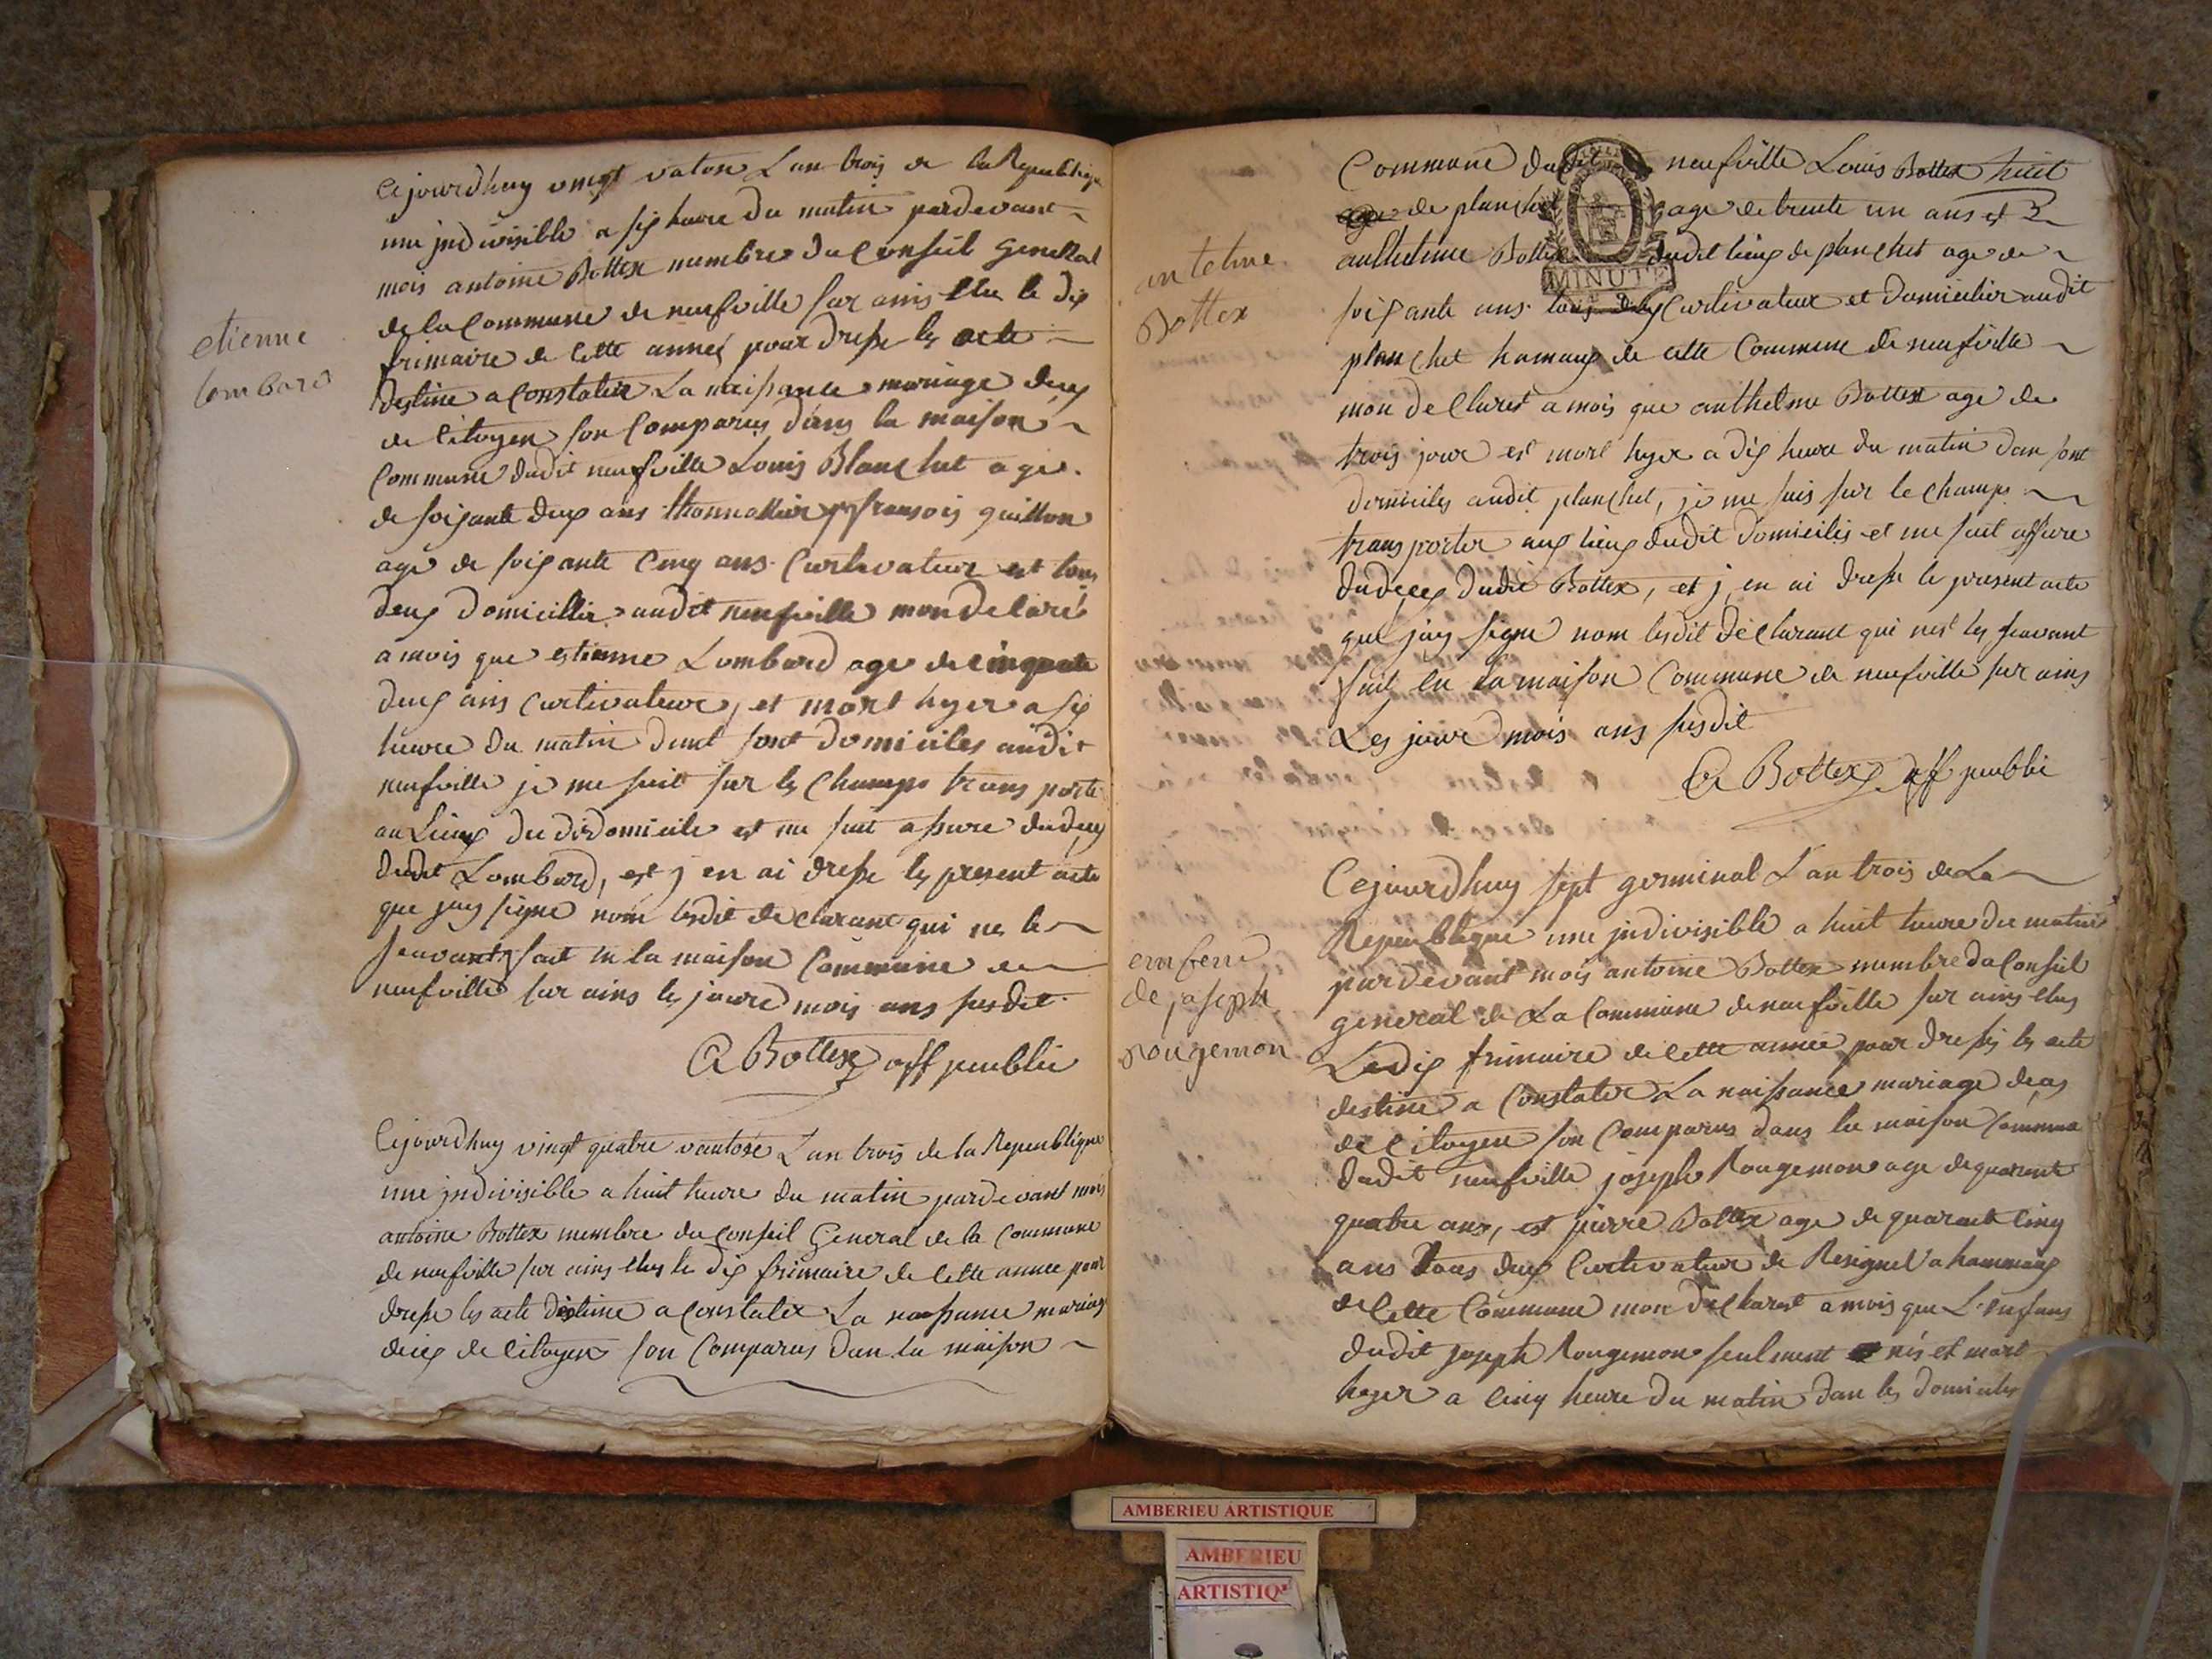 etienne
lombard
Cejourdhuy vingt vatose Lan trois de la Republique
une jndivisible a six heure du matin pardevant
mois antoine Bottex membre du Conseil general
de la Commune de neufville sur ains elu le dix
frimaire de Cette anneé pour dresse les acte
destine a Constater La naissance mariage deces
de Citoyen son Comparus dans la maison
Commune dudit neufville Louis Blanchet age
de soisante deux ans thonnallier fransois guillon
age de soisante Cinq ans Curtivateur est tous
deux domicillie audit neufville mon declare
a mois que estienne Lombard age de cinquate
deux ans Curtivateur, et mort hyer a six
heure du matin dant sont domiciles audit
neufville je me suit sur les Champs transporte
au Lieux du dit domicile et me suit assure du deces
dudit Lombard, est j en ai dresse les present acte
que jay signe nom lesdit declarant qui ne le
seavant fait en la maison Commune de
neufville sur ains les jours mois ans susdit
A Bottex off publie
Cejourdhuy vingt quatre vantose Lan trois de la Republique
une jndivisible a huit heure du matin pardevant mois
antoine Bottex membre du Conseil General de la Commune
de neufville sur ains elus le dix frimaire de Cette annee pour
dresse les acte destine a Constater La naissance mariage
deces de Citoyen son Comparus dan la maison
antelme
Bottex
Commune dudit neufville Louis Bottex huit
age de planchet age de trente un ans et
anthelme Bottex dudit lieux de planchet age de
soisante ans tous deux Curtivateur et domicilier audit
planchet hamaux de cette Commune de neufville
mon declaret a mois que anthelme Bottex age de
trois jour est mort hyer a dix heure du matin dan sont
domiciles audit planchet, je me suis sur le champs
transporter aux lieux dudit domicilis et me suit assure
du deces dudit Bottex, et j en ai dresse le present acte
que jay signe nom lesdit declarant qui nest les seavant
fait en la maison Commune de neufville sur ains
Les jour mois ans susdit
A Bottex off publie
enfent
de joseph
rougemon
Cejourdhuy sept germinal Lan trois de La
Republique une jndivisible a huit heure du matin
pardevant mois antoine Bottex membre du Conseil
general de La Commune de neufville sur ains elus
Le dix frimaire de Cette anneé pour dresse les acte
destine a Constater La naissance mariage deces
de Citoyen son Comparus dans la maison Commune
dudit neufville joseph Rougemon age de quarante
quatre ans, est pierre Bottex age de quarante Cinq
ans tous deux Curtivateur de Resignel a hammaux
de Cette Commune mon declaret a mois que L'enfans
dudit joseph Rougemon seulment nés et mort
hyer a Cinq heure du matin dan les domicile
MINUTE
AMBERIEU ARTISTIQUE
AMBERIEU
ARTISTIQ